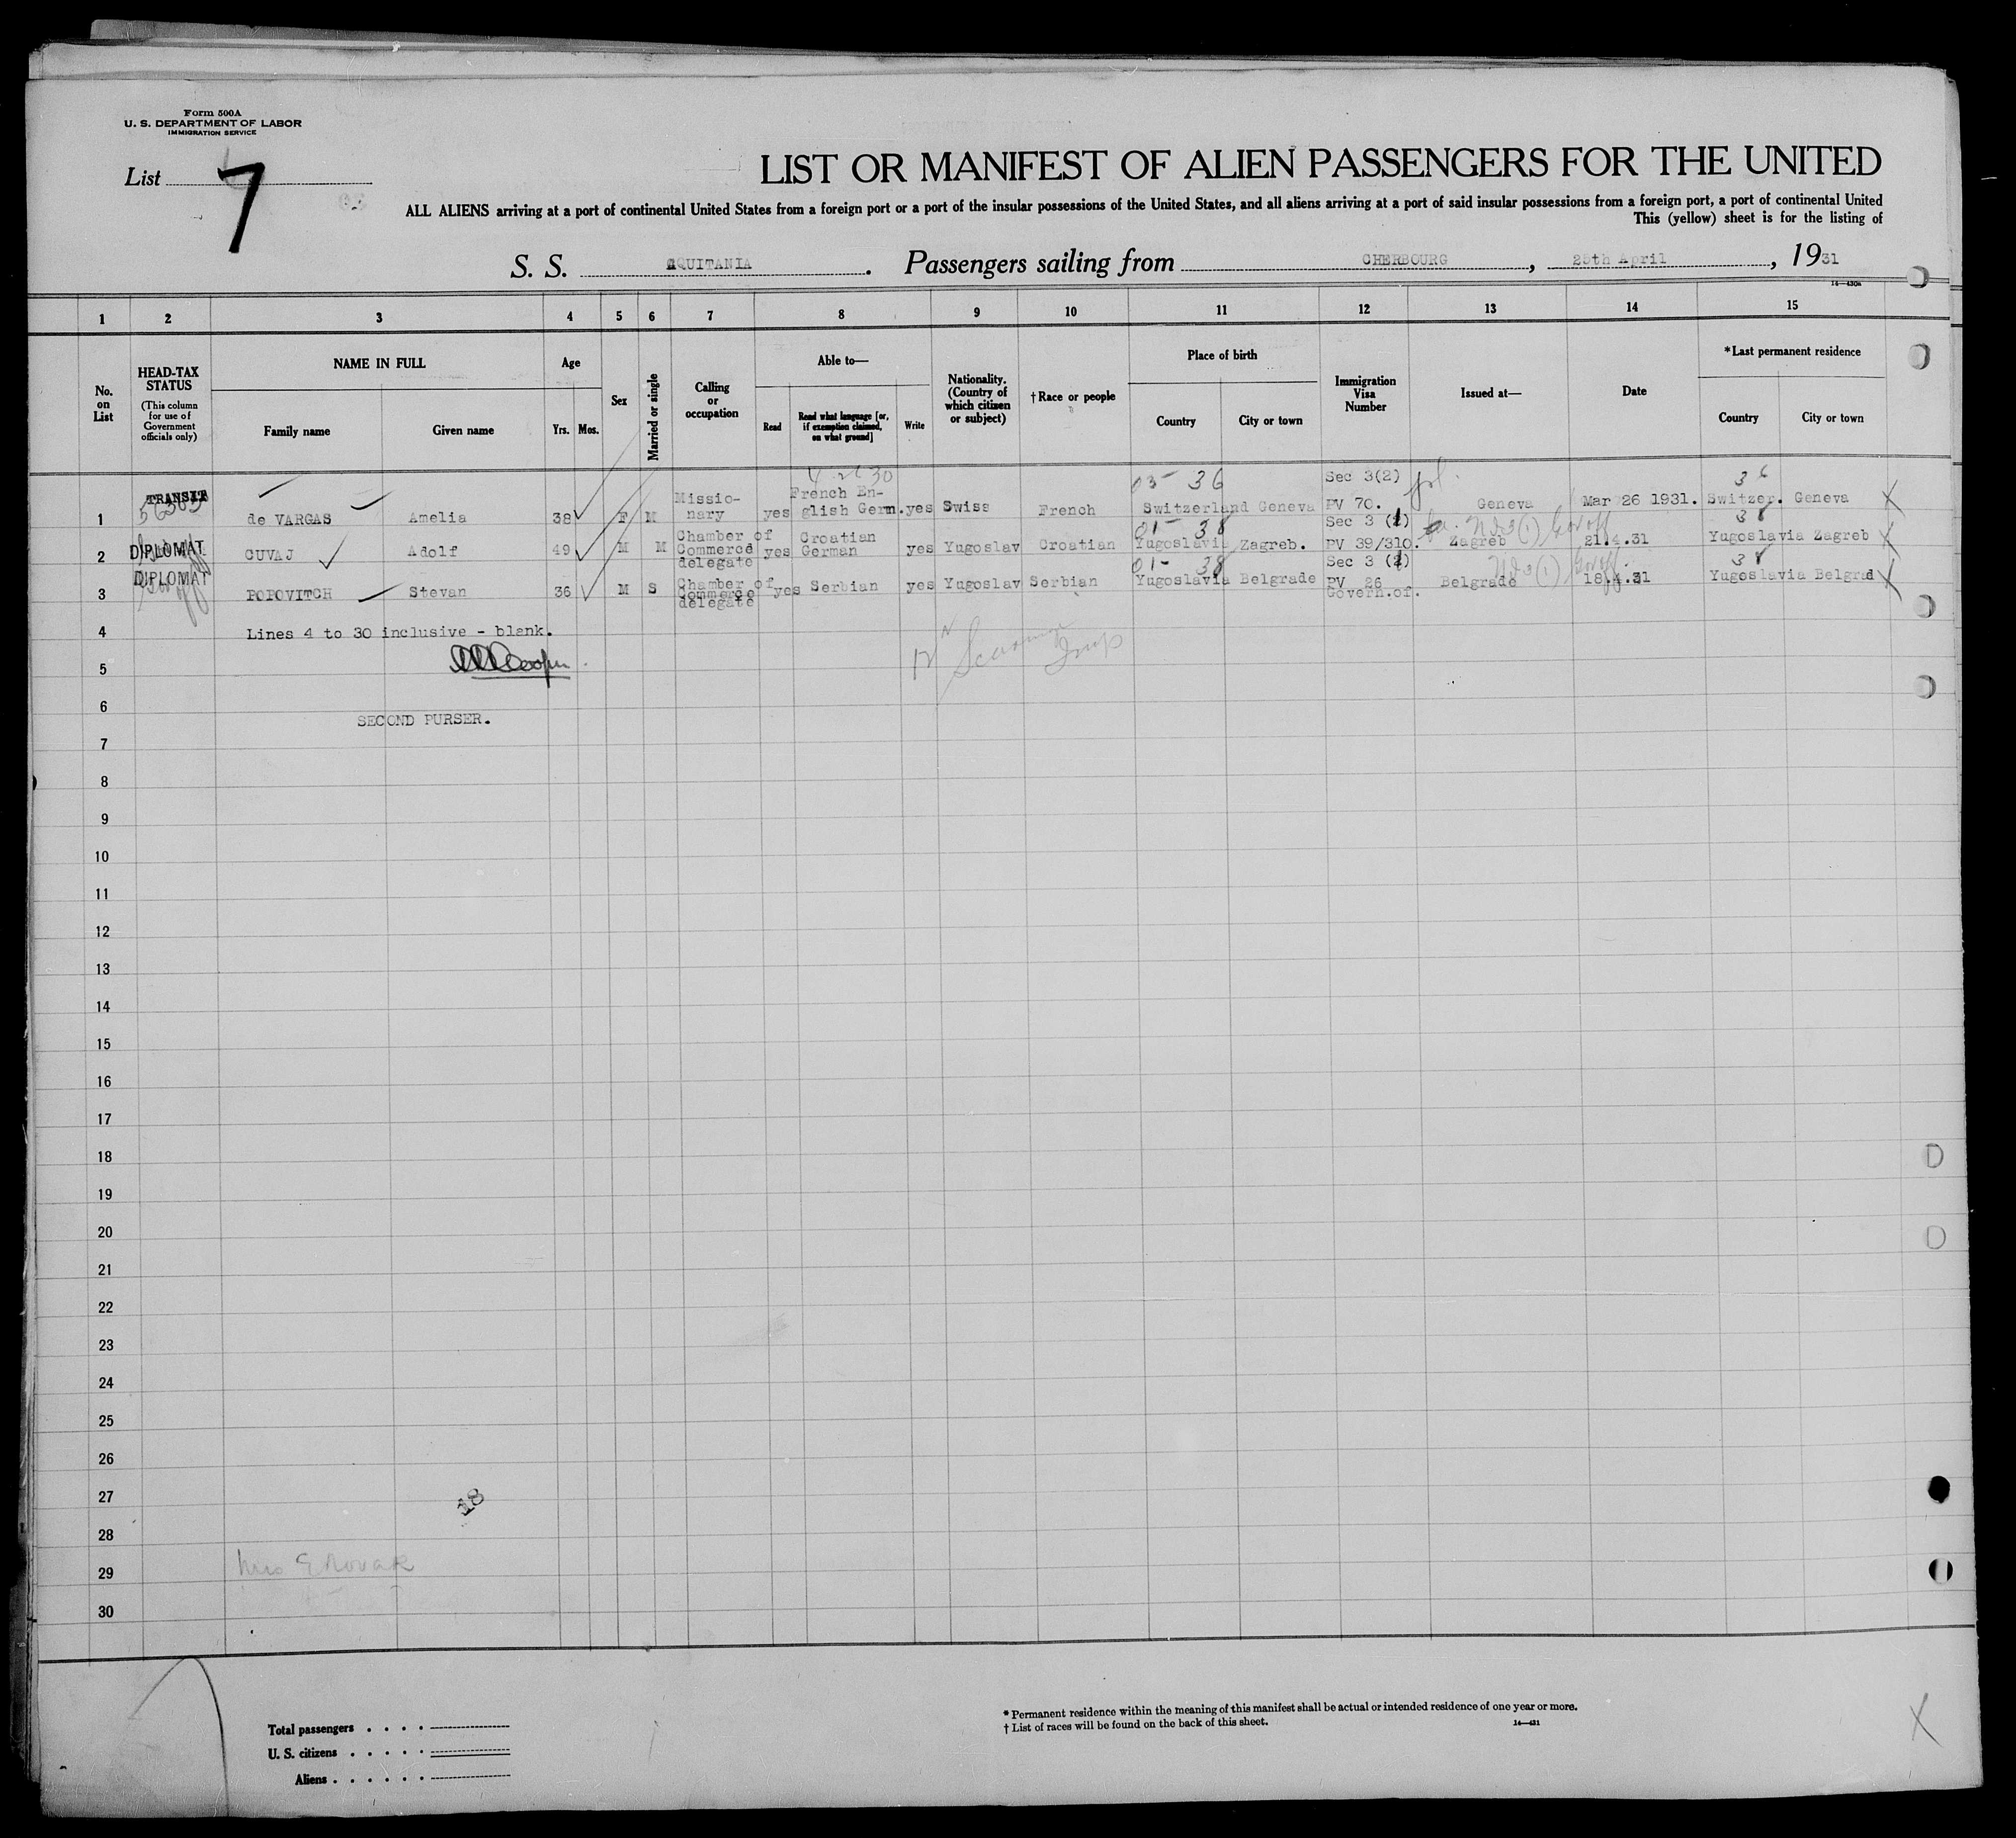 Form 500A
U. S. DEPARTMENT OF LABOR
IMMIGRATION SERVICE
List 7
LIST OR MANIFEST OF ALIEN PASSENGERS FOR THE UNITED
ALL ALIENS arriving at a port of continental United States from a foreign port or a port of the insular possessions of the United States, and all aliens arriving at a port of said insular possessions from a foreign port, a port of continental United
This (yellow) sheet is for the listing of
S. S. AQUITANIA. Passengers sailing from CHERBOURG, 25th April, 1931
1 2 3 4 5 6 7 8 9 10 11 12 13 14 15
No. on List
HEAD-TAX STATUS (This column for use of Government officials only)
NAME IN FULL
Family name Given name
Age
Yrs. Mos.
Sex
Married or single
Calling or occupation
Able to—
Read
Read what language [or, if exemption claimed, on what ground]
Write
Nationality. (Country of which citizen or subject)
†Race or people
Place of birth
Country City or town
Immigration Visa Number
Issued at—
Date
*Last permanent residence
Country City or town
03- 36 36
1 TRANSIT de VARGAS Amelia 38 F M Missionary yes French English Germ. yes Swiss French Switzerland Geneva Sec 3(2) PV 70. Geneva Mar 26 1931. Switzer. Geneva
01- 38 38
2 DIPLOMAT CUVAJ Adolf 49 M M Chamber of Commerce delegate yes Croatian German yes Yugoslav Croatian Yugoslavia Zagreb. Sec 3 (1) PV 39/310. Zagreb 21.4.31 Yugoslavia Zagreb
01- 38 38
3 DIPLOMAT POPOVITCH Stevan 36 M S Chamber of Commerce delegate yes Serbian yes Yugoslav Serbian Yugoslavia Belgrade Sec 3 (1) PV 26 Govern.of. Belgrade 18.4.31 Yugoslavia Belgrad
4 Lines 4 to 30 inclusive - blank.
5
6
SECOND PURSER.
7
8
9
10
11
12
13
14
15
16
17
18
19
20
21
22
23
24
25
26
27
18
28
29 Mrs E Novak
30
Total passengers
U. S. citizens
Aliens
* Permanent residence within the meaning of this manifest shall be actual or intended residence of one year or more.
† List of races will be found on the back of this sheet.
14—431